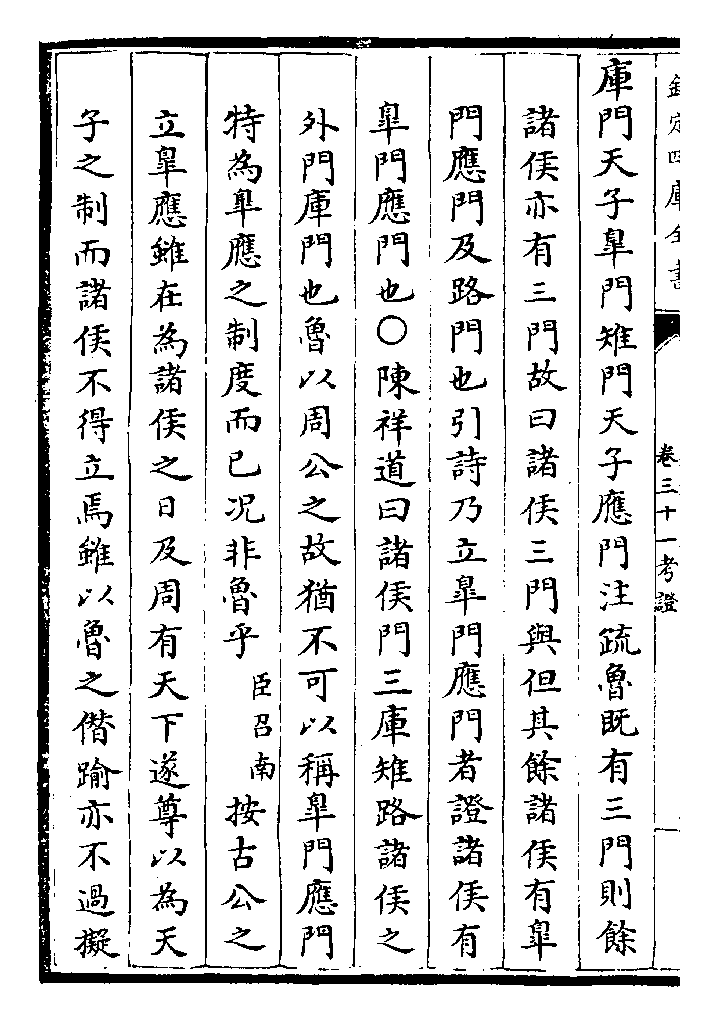 欽定四庫全書
卷三十一考證
庫門天子臯門雉門天子應門注疏魯既有三門則餘
諸侯亦有三門故曰諸侯三門與但其餘諸侯有臯
門應門及路門也引詩乃立臯門應門者證諸侯有
臯門應門也○陳祥道曰諸侯門三庫雉路諸侯之
外門庫門也魯以周公之故猶不可以稱臯門應門
特為臯應之制度而已况非魯乎臣召南按古公之
立臯應雖在為諸侯之日及周有天下遂尊以為天
子之制而諸侯不得立焉雖以魯之僭踰亦不過擬